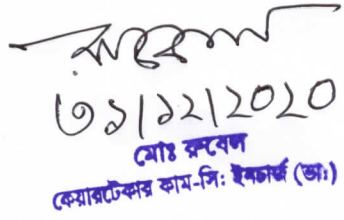 রুবেল
৩১/১২/২০২০
মোঃ রুবেল
কেয়ারটেকার কাম-সি: ইনচার্জ (ভা:)